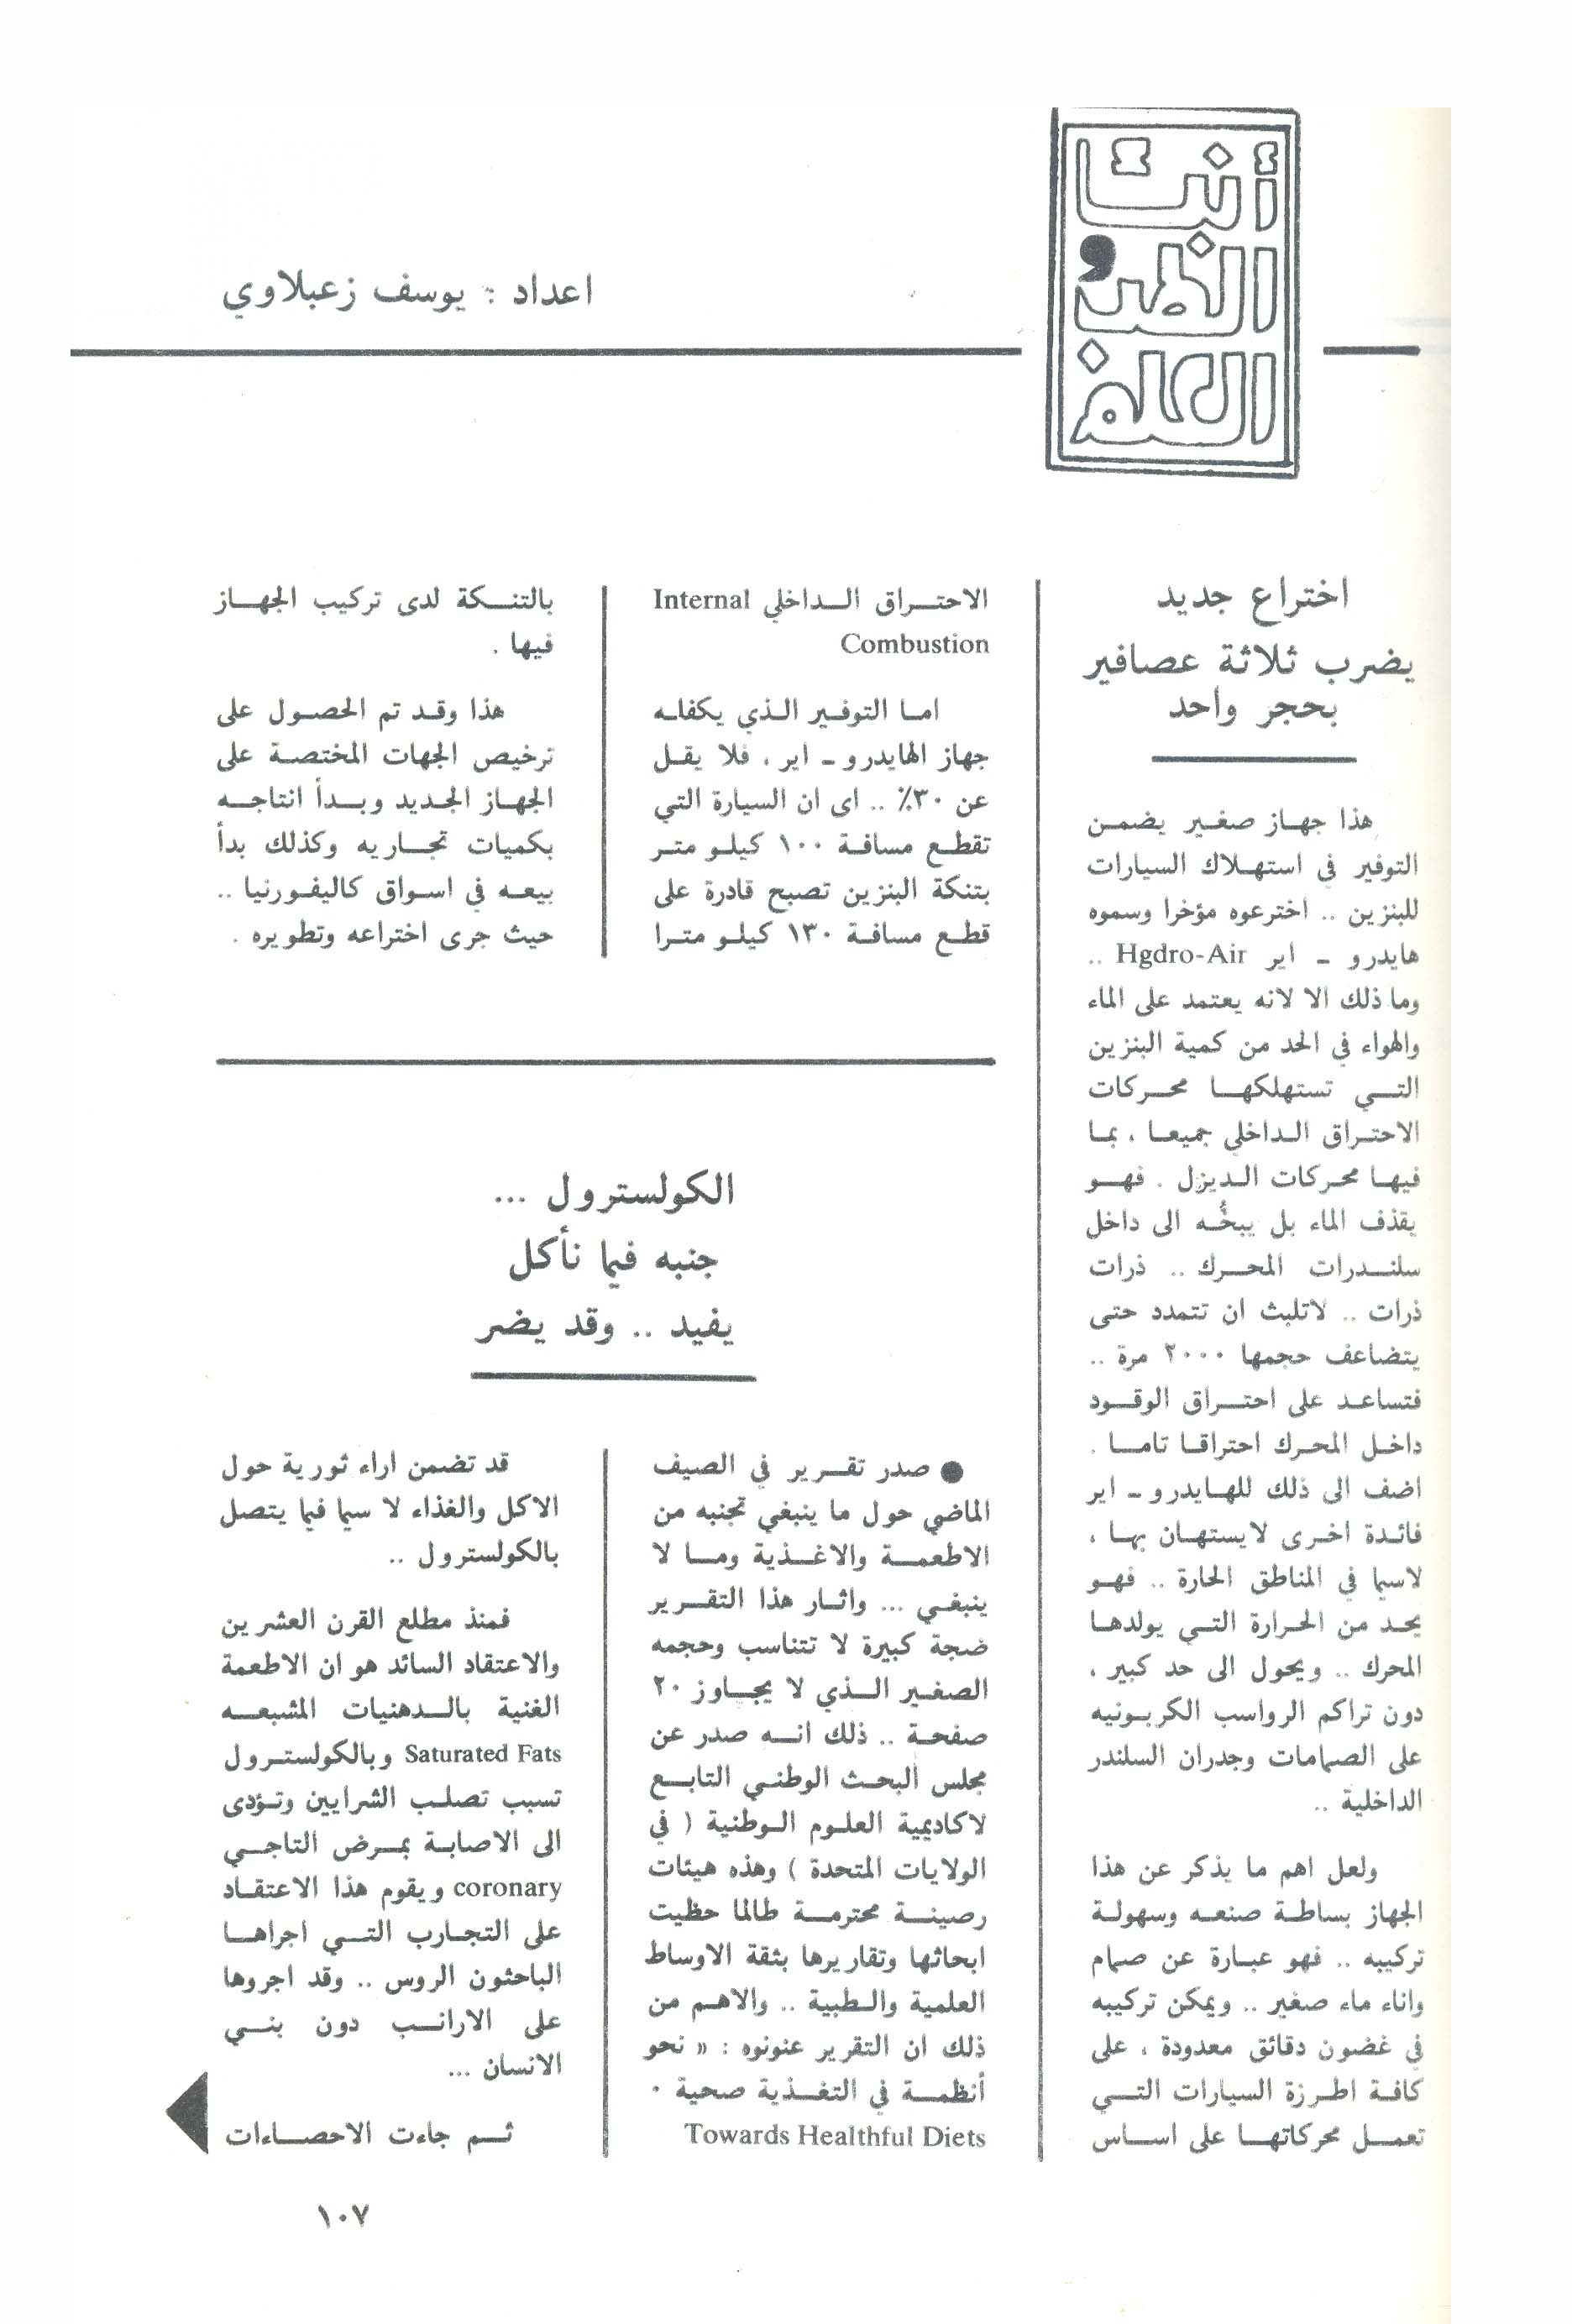 أنباء
الطب و
العلم
اعداد : يوسف زعبلاوي
اختراع جديد
يضرب ثلاثة عصافير
بحجر واحد
هذا جهاز صغير يضمن
التوفير في استهلاك السيارات
للبنزين .. اخترعوه مؤخرا وسموه
هايدرو - اير Hgdro-Air ..
وما ذلك الا لانه يعتمد على الماء
والهواء في الحد من كمية البنزين
التي تستهلكها محركات
الاحتراق الداخلي جميعا ، بما
فيها محركات الديزل . فهو
يقذف الماء بل يبخُّه الى داخل
سلندرات المحرك .. ذرات
ذرات .. لاتلبث ان تتمدد حتى
يتضاعف حجمها ٢٠٠٠ مرة ..
فتساعد على احتراق الوقود
داخل المحرك احتراقا تاما .
اضف الى ذلك للهايدرو - اير
فائدة اخرى لايستهان بها ،
لاسيما في المناطق الحارة .. فهو
يحد من الحرارة التي يولدها
المحرك .. ويحول الى حد كبير ،
دون تراكم الرواسب الكربونيه
على الصمامات وجدران السلندر
الداخلية ..
ولعل اهم ما يذكر عن هذا
الجهاز بساطة صنعه وسهولة
تركيبه .. فهو عبارة عن صمام
واناء ماء صغير .. ويمكن تركيبه
في غضون دقائق معدودة ، على
كافة اطرزة السيارات التي
تعمل محركاتها على اساس
الاحتراق الداخلي Internal
Combustion
اما التوفير الذي يكفله
جهاز الهايدرو - اير ، فلا يقل
عن ٣٠٪ .. اى ان السيارة التي
تقطع مسافة ١٠٠ كيلو متر
بتنكة البنزين تصبح قادرة على
قطع مسافة ١٣٠ كيلو مترا
بالتنكة لدى تركيب الجهاز
فيها .
هذا وقد تم الحصول على
ترخيص الجهات المختصة على
الجهاز الجديد وبدأ انتاجه
بكميات تجاريه وكذلك بدأ
بيعه في اسواق كاليفورنيا ..
حيث جرى اختراعه وتطويره .
الكولسترول ...
جنبه فيما نأكل
يفيد .. وقد يضر
● صدر تقرير في الصيف
الماضي حول ما ينبغي تجنبه من
الاطعمة والاغذية وما لا
ينبغي ... واثار هذا التقرير
ضجة كبيرة لا تتناسب وحجمه
الصغير الذي لا يجاوز ٢٠
صفحة .. ذلك انه صدر عن
مجلس البحث الوطني التابع
لاكاديمية العلوم الوطنية ( في
الولايات المتحدة ) وهذه هيئات
رصينة محترمة طالما حظيت
ابحاثها وتقاريرها بثقة الاوساط
العلمية والطبية .. والاهم من
ذلك ان التقرير عنونوه : « نحو
أنظمة في التغذية صحية .
Towards Healthful Diets
قد تضمن اراء ثورية حول
الاكل والغذاء لا سيما فيما يتصل
بالكولسترول ..
فمنذ مطلع القرن العشرين
والاعتقاد السائد هو ان الاطعمة
الغنية بالدهنيات المشبعه
Saturated Fats وبالكولسترول
تسبب تصلب الشرايين وتؤدى
الى الاصابة بمرض التاجي
coronary ويقوم هذا الاعتقاد
على التجارب التي اجراها
الباحثون الروس .. وقد اجروها
على الارانب دون بني
الانسان ...
ثم جاءت الاحصاءات
١٠٧